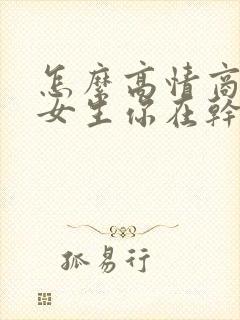 怎麼高情商
女生你在幹
孤易行